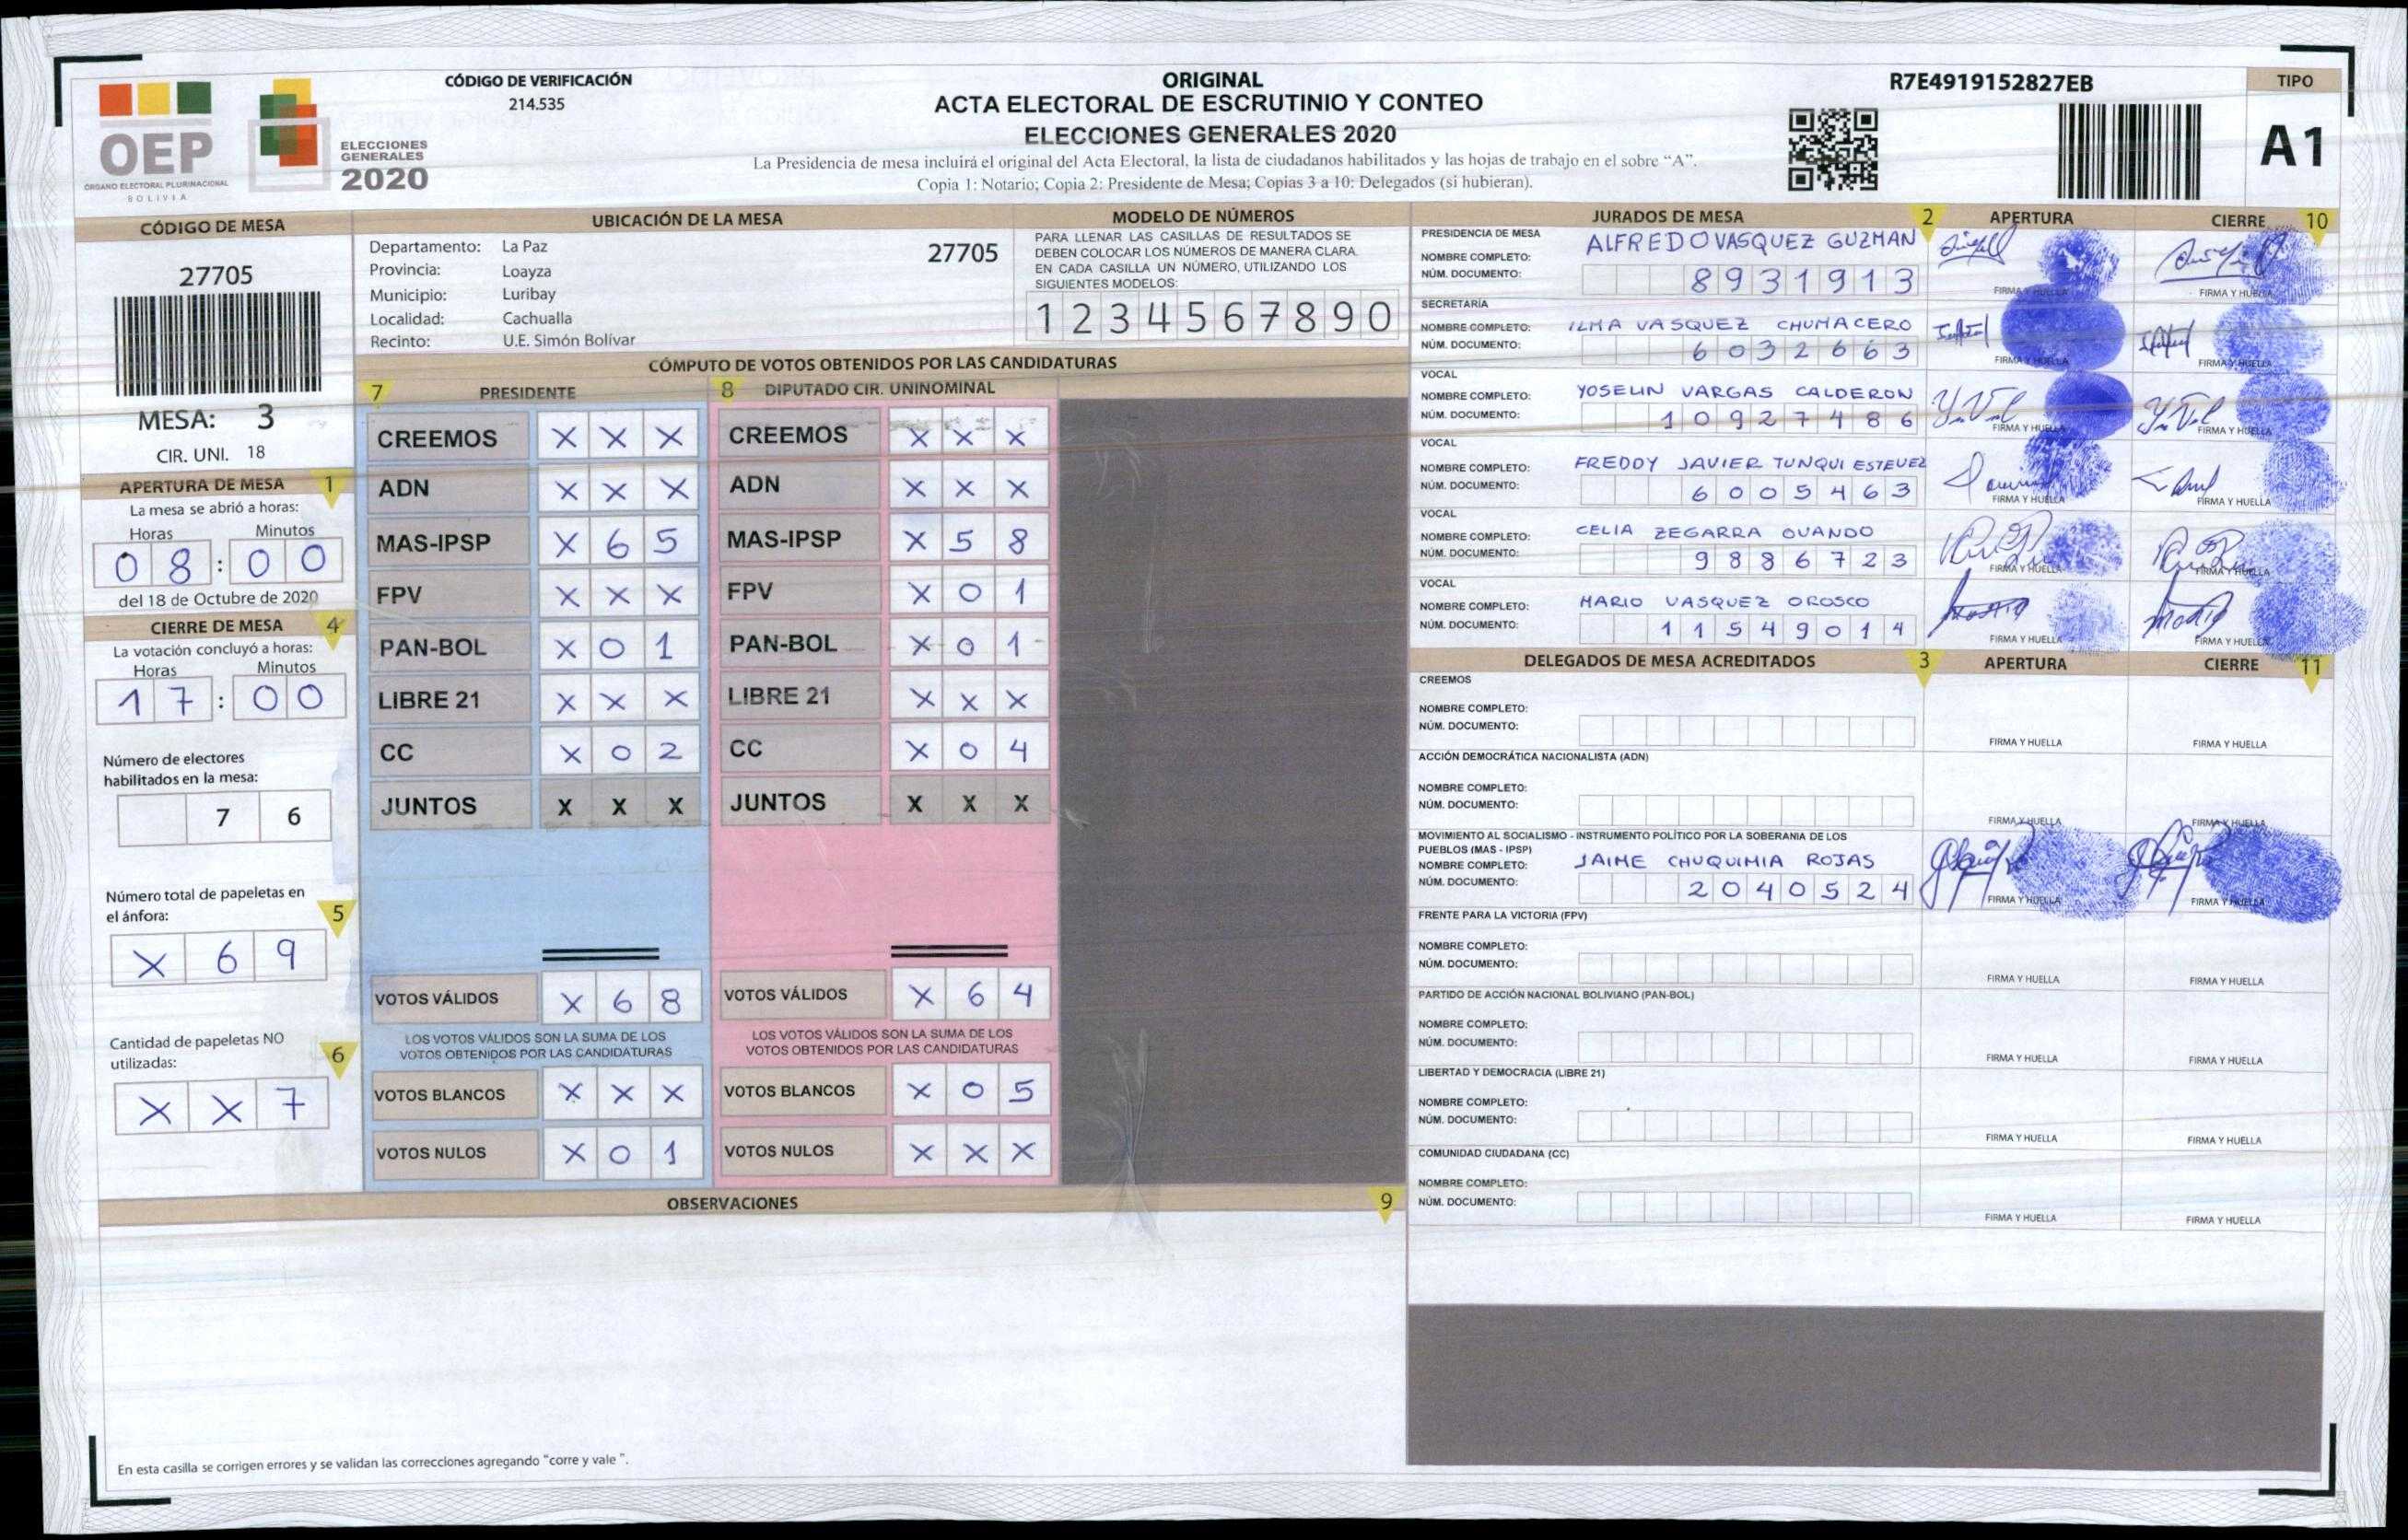 CÓDIGO DE VERIFICACIÓN
214.535
ORIGINAL
ACTA ELECTORAL DE ESCRUTINIO Y CONTEO
ELECCIONES GENERALES 2020
La Presidencia de mesa incluirá el original del Acta Electoral, la lista de ciudadanos habilitados y las hojas de trabajo en el sobre “A”.
Copia 1: Notario; Copia 2: Presidente de Mesa; Copias 3 a 10: Delegados (si hubieran).
R7E4919152827EB
TIPO
A1
OEP
ÓRGANO ELECTORAL PLURINACIONAL
BOLIVIA
ELECCIONES
GENERALES
2020
CÓDIGO DE MESA
27705
MESA: 3
CIR. UNI. 18
APERTURA DE MESA 1
La mesa se abrió a horas:
Horas Minutos
0 8 : 0 0
del 18 de Octubre de 2020
CIERRE DE MESA 4
La votación concluyó a horas:
Horas Minutos
1 7 : 0 0
Número de electores
habilitados en la mesa:
7 6
Número total de papeletas en
el ánfora: 5
X 6 9
Cantidad de papeletas NO
utilizadas: 6
X X 7
UBICACIÓN DE LA MESA
Departamento: La Paz 27705
Provincia: Loayza
Municipio: Luribay
Localidad: Cachualla
Recinto: U.E. Simón Bolívar
MODELO DE NÚMEROS
PARA LLENAR LAS CASILLAS DE RESULTADOS SE
DEBEN COLOCAR LOS NÚMEROS DE MANERA CLARA.
EN CADA CASILLA UN NÚMERO, UTILIZANDO LOS
SIGUIENTES MODELOS:
1 2 3 4 5 6 7 8 9 0
CÓMPUTO DE VOTOS OBTENIDOS POR LAS CANDIDATURAS
7 PRESIDENTE
CREEMOS X X X
ADN X X X
MAS-IPSP X 6 5
FPV X X X
PAN-BOL X 0 1
LIBRE 21 X X X
CC X 0 2
JUNTOS X X X
VOTOS VÁLIDOS X 6 8
LOS VOTOS VÁLIDOS SON LA SUMA DE LOS
VOTOS OBTENIDOS POR LAS CANDIDATURAS
VOTOS BLANCOS X X X
VOTOS NULOS X 0 1
8 DIPUTADO CIR. UNINOMINAL
CREEMOS X X X
ADN X X X
MAS-IPSP X 5 8
FPV X 0 1
PAN-BOL X 0 1
LIBRE 21 X X X
CC X 0 4
JUNTOS X X X
VOTOS VÁLIDOS X 6 4
LOS VOTOS VÁLIDOS SON LA SUMA DE LOS
VOTOS OBTENIDOS POR LAS CANDIDATURAS
VOTOS BLANCOS X 0 5
VOTOS NULOS X X X
OBSERVACIONES 9
En esta casilla se corrigen errores y se validan las correcciones agregando "corre y vale ".
JURADOS DE MESA 2 APERTURA CIERRE 10
PRESIDENCIA DE MESA
NOMBRE COMPLETO: ALFREDO VASQUEZ GUZMAN
NÚM. DOCUMENTO: 8931913
FIRMA Y HUELLA FIRMA Y HUELLA
SECRETARÍA
NOMBRE COMPLETO: ILMA VASQUEZ CHUMACERO
NÚM. DOCUMENTO: 6032663
FIRMA Y HUELLA FIRMA Y HUELLA
VOCAL
NOMBRE COMPLETO: YOSELIN VARGAS CALDERON
NÚM. DOCUMENTO: 10927486
FIRMA Y HUELLA FIRMA Y HUELLA
VOCAL
NOMBRE COMPLETO: FREDDY JAVIER TUNQUI ESTEVEZ
NÚM. DOCUMENTO: 6005463
FIRMA Y HUELLA FIRMA Y HUELLA
VOCAL
NOMBRE COMPLETO: CELIA ZEGARRA OVANDO
NÚM. DOCUMENTO: 9886723
FIRMA Y HUELLA FIRMA Y HUELLA
VOCAL
NOMBRE COMPLETO: MARIO VASQUEZ OROSCO
NÚM. DOCUMENTO: 11549014
FIRMA Y HUELLA FIRMA Y HUELLA
DELEGADOS DE MESA ACREDITADOS 3 APERTURA CIERRE 11
CREEMOS
NOMBRE COMPLETO:
NÚM. DOCUMENTO:
FIRMA Y HUELLA FIRMA Y HUELLA
ACCIÓN DEMOCRÁTICA NACIONALISTA (ADN)
NOMBRE COMPLETO:
NÚM. DOCUMENTO:
FIRMA Y HUELLA FIRMA Y HUELLA
MOVIMIENTO AL SOCIALISMO - INSTRUMENTO POLÍTICO POR LA SOBERANIA DE LOS
PUEBLOS (MAS - IPSP)
NOMBRE COMPLETO: JAIME CHUQUIMIA ROJAS
NÚM. DOCUMENTO: 2040524
FIRMA Y HUELLA FIRMA Y HUELLA
FRENTE PARA LA VICTORIA (FPV)
NOMBRE COMPLETO:
NÚM. DOCUMENTO:
FIRMA Y HUELLA FIRMA Y HUELLA
PARTIDO DE ACCIÓN NACIONAL BOLIVIANO (PAN-BOL)
NOMBRE COMPLETO:
NÚM. DOCUMENTO:
FIRMA Y HUELLA FIRMA Y HUELLA
LIBERTAD Y DEMOCRACIA (LIBRE 21)
NOMBRE COMPLETO:
NÚM. DOCUMENTO:
FIRMA Y HUELLA FIRMA Y HUELLA
COMUNIDAD CIUDADANA (CC)
NOMBRE COMPLETO:
NÚM. DOCUMENTO:
FIRMA Y HUELLA FIRMA Y HUELLA